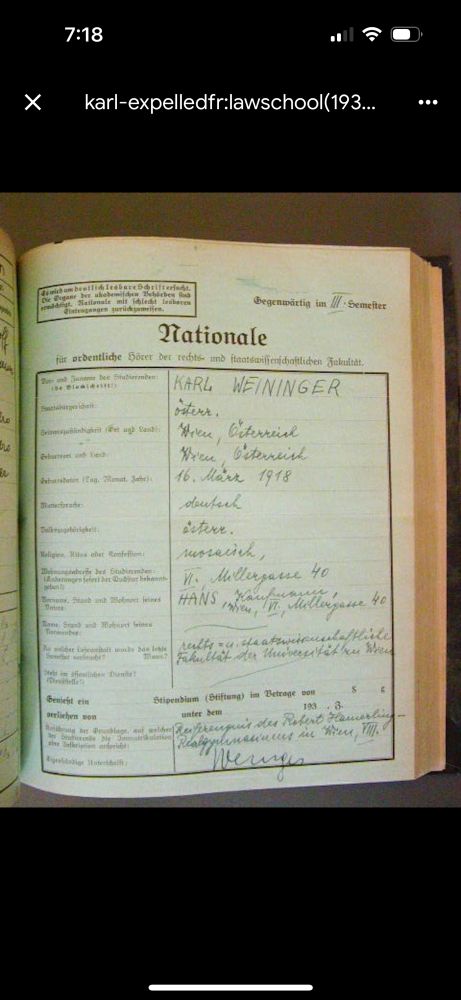 7:18
karl-expelledfr:lawschool(193...
Es wird um deutlich lesbare Schrift ersucht.
Die Organe der akademischen Behörden sind
ermächtigt, Nationale mit schlecht lesbaren
Eintragungen zurückzuweisen.
Gegenwärtig im III. Semester
Nationale
für ordentliche Hörer der rechts- und staatswissenschaftlichen Fakultät.
Vor- und Zuname des Studierenden:
(in Blockschrift!)
KARL WEININGER
Staatsbürgerschaft:
österr.
Heimatzuständigkeit (Ort und Land):
Wien, Österreich
Geburtsort und Land:
Wien, Österreich
Geburtsdatum (Tag, Monat, Jahr):
16. März 1918
Muttersprache:
deutsch
Volkszugehörigkeit:
österr.
Religion, Ritus oder Konfession:
mosaisch,
Wohnungsadresse des Studierenden:
VI. Millergasse 40
Vorname, Stand und Wohnort seines
Vaters:
HANS, Kaufmann,
Wien, VI, Millergasse 40
Name, Stand und Wohnort seines
Vormundes:
An welcher Lehranstalt wurde das letzte
Semester verbracht? Wann?
rechts- u. staatswissenschaftliche
Fakultät der Universität zu Wien
Steht im öffentlichen Dienste?
(Dienststelle?)
Genießt ein Stipendium (Stiftung) im Betrage von S g
verliehen von unter dem 193 . Z.
Anführung der Grundlage, auf welcher
der Studierende die Immatrikulation
oder Inskription anspricht:
Reifezeugnis des Robert Hamerling-
Realgymnasiums in Wien, VIII.
Eigenhändige Unterschrift: